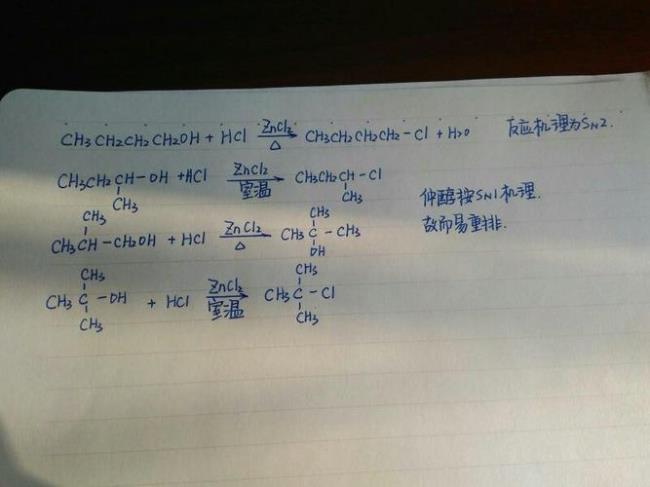 CH3CH2CH2CH2OH + HCl ZnCl2 △ CH3CH2CH2CH2-Cl + H2O 反应机理为SN2.
CH3CH2CH-OH +HCl ZnCl2 室温 CH3CH2CH-Cl
CH3 CH3
仲醇按SN1机理.
故而易重排.
CH3 CH3
CH3CH-CH2OH + HCl ZnCl2 △ CH3C-CH3
OH
CH3 CH3
CH3C-OH + HCl ZnCl2 室温 CH3C-Cl
CH3 CH3